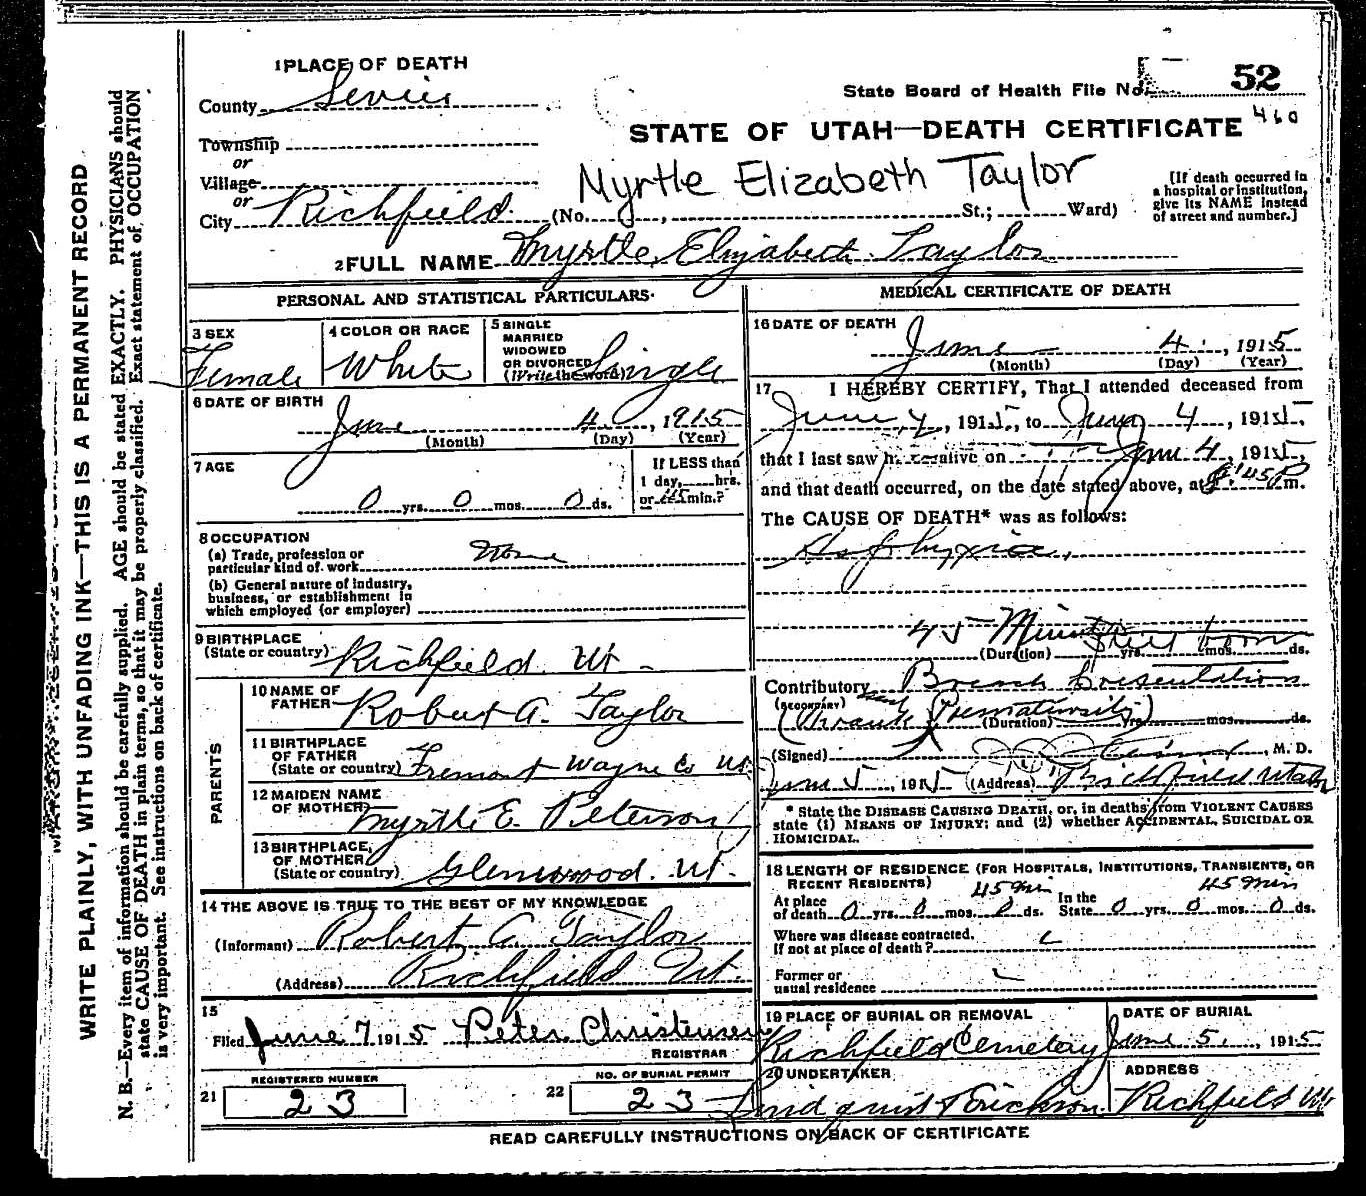 1 PLACE OF DEATH
County Sevier
State Board of Health File No. 52
460
STATE OF UTAH—DEATH CERTIFICATE
Township
or
Village
or
City Richfield (No. , St.; Ward)
Myrtle Elizabeth Taylor
[If death occurred in
a hospital or institution,
give its NAME instead
of street and number.]
2 FULL NAME Myrtle Elizabeth Taylor
PERSONAL AND STATISTICAL PARTICULARS
3 SEX
Female
4 COLOR OR RACE
White
5 SINGLE
MARRIED
WIDOWED
OR DIVORCED
(Write the word) Single
6 DATE OF BIRTH
June 4, 1915
(Month) (Day) (Year)
7 AGE
0 yrs. 0 mos. 0 ds.
If LESS than
1 day, hrs.
or 45 min.?
8 OCCUPATION
(a) Trade, profession or
particular kind of work None
(b) General nature of industry,
business, or establishment in
which employed (or employer)
9 BIRTHPLACE
(State or country) Richfield Ut
PARENTS
10 NAME OF
FATHER Robert A. Taylor
11 BIRTHPLACE
OF FATHER
(State or country) Fremont Wayne Co Ut.
12 MAIDEN NAME
OF MOTHER Myrtle E. Peterson
13 BIRTHPLACE
OF MOTHER
(State or country) Glenwood. Ut.
14 THE ABOVE IS TRUE TO THE BEST OF MY KNOWLEDGE
(Informant) Robert A Taylor
(Address) Richfield Ut.
15
Filed June 7 1915 Peter Christensen
REGISTRAR
21 REGISTERED NUMBER
23
22 NO. OF BURIAL PERMIT
23
MEDICAL CERTIFICATE OF DEATH
16 DATE OF DEATH
June 4, 1915
(Month) (Day) (Year)
17 I HEREBY CERTIFY, That I attended deceased from
June 4, 1915, to June 4, 1915,
that I last saw h alive on June 4, 1915,
and that death occurred, on the date stated above, at 45 P m.
The CAUSE OF DEATH* was as follows:
Asphyxia,
45 Minutes
(Duration) yrs. mos. ds.
Contributory Breech Presentation
(SECONDARY) (Prematurity)
(Duration) yrs. mos. ds.
(Signed) , M. D.
June 5, 1915 (Address) Richfield Utah
* State the DISEASE CAUSING DEATH, or, in deaths from VIOLENT CAUSES
state (1) MEANS OF INJURY; and (2) whether ACCIDENTAL, SUICIDAL OR
HOMICIDAL.
18 LENGTH OF RESIDENCE (FOR HOSPITALS, INSTITUTIONS, TRANSIENTS, OR
RECENT RESIDENTS) 45 min 45 min
At place
of death 0 yrs. 0 mos. 0 ds. In the
State 0 yrs. 0 mos. 0 ds.
Where was disease contracted,
If not at place of death?
Former or
usual residence
19 PLACE OF BURIAL OR REMOVAL
Richfield Cemetery
DATE OF BURIAL
June 5, 1915
20 UNDERTAKER
Lindquist Erickson
ADDRESS
Richfield Ut
READ CAREFULLY INSTRUCTIONS ON BACK OF CERTIFICATE
WRITE PLAINLY, WITH UNFADING INK—THIS IS A PERMANENT RECORD
N. B.—Every item of information should be carefully supplied. AGE should be stated EXACTLY. PHYSICIANS should
state CAUSE OF DEATH in plain terms, so that it may be properly classified. Exact statement of OCCUPATION
is very important. See instructions on back of certificate.